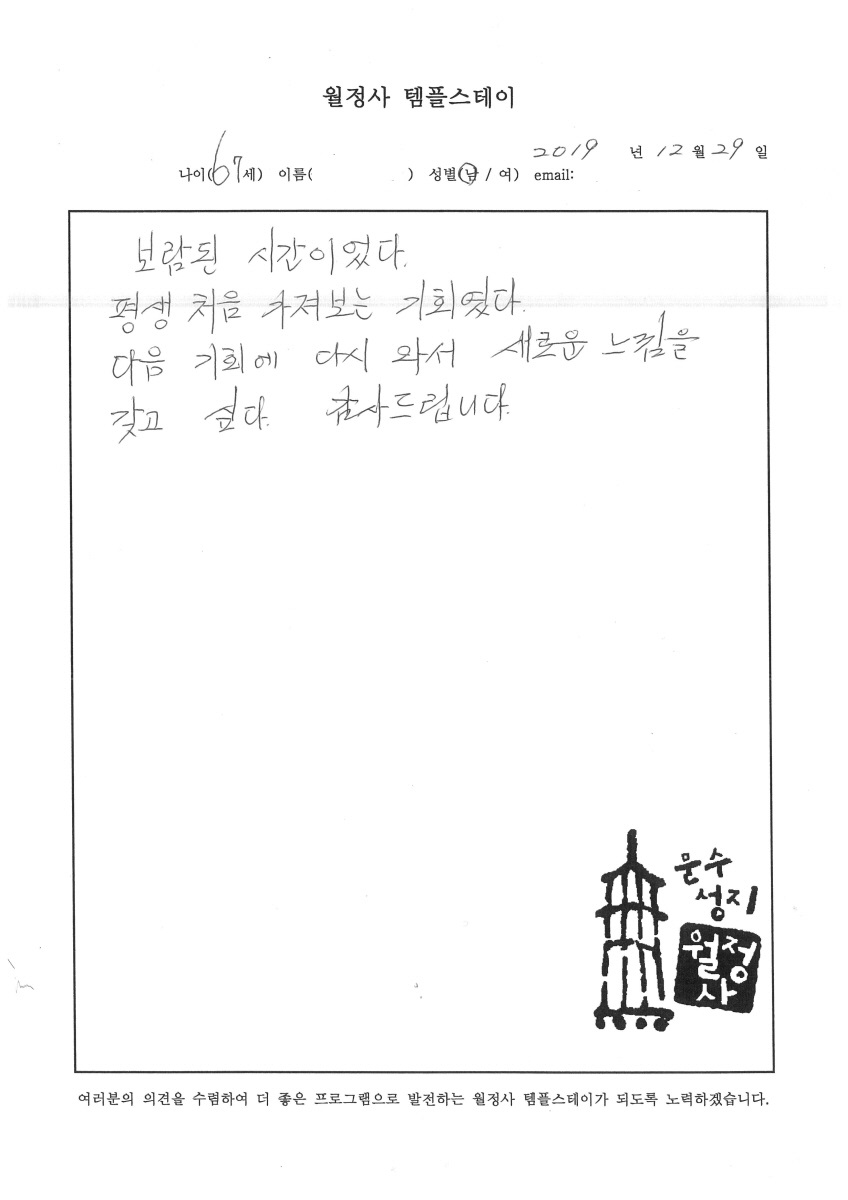 월정사 템플스테이
2019 년 12 월 29 일
나이(67세) 이름( ) 성별(남 / 여) email:
보람된 시간이었다.
평생 처음 가져보는 기회였다.
다음 기회에 다시 와서 새로운 느낌을
갖고 싶다. 감사드립니다.
문수
성지
월정
사
여러분의 의견을 수렴하여 더 좋은 프로그램으로 발전하는 월정사 템플스테이가 되도록 노력하겠습니다.